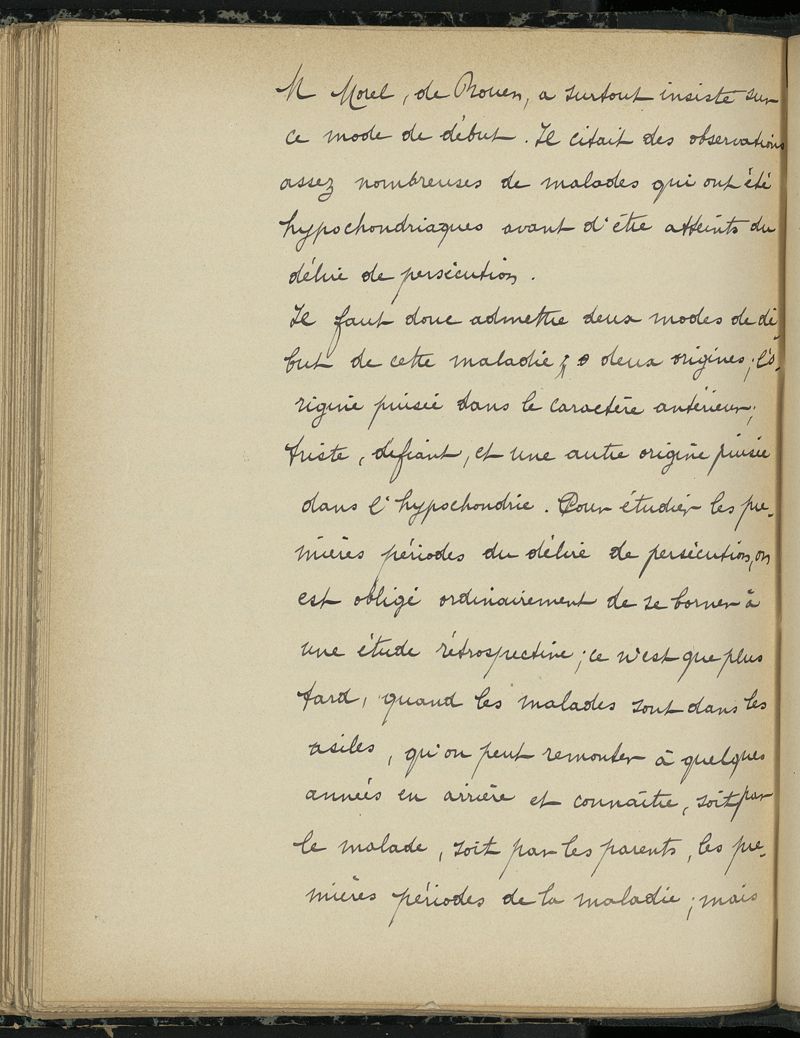 M Morel, de Rouen, a surtout insisté sur
ce mode de début. Il citait des observations
assez nombreuses de malades qui ont été
hypochondriaques avant d'être atteints du
délire de persécution.
Il faut donc admettre deux modes de dé-
but de cette maladie; deux origines; l'o-
rigine puisée dans le caractère antérieur;
triste, défiant, et une autre origine puisée
dans l'hypochondrie. Pour étudier les pre-
mières périodes du délire de persécution, on
est obligé ordinairement de se borner à
une étude rétrospective; ce n'est que plus
tard, quand les malades sont dans les
asiles, qu'on peut remonter à quelques
années en arrière et connaître, soit par
le malade, soit par les parents, les pre-
mières périodes de la maladie; mais